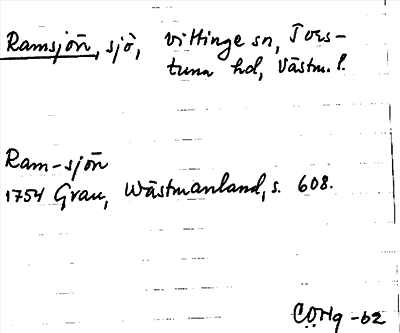 Ramsjön, sjö, Vittinge sn, Tors-
tuna hd, Västm. l.
Ram-sjön
1754 Grau, Wästmanland, s. 608.
COHg -62